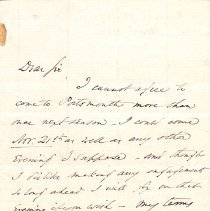 Dear Sir
I cannot agree to
come to Portsmouth more than
once next season. I could come
Nov. 21st as well as any other
evening I suppose - and though
I dislike making any engagement
so long ahead I will be on that
evening if you wish - my terms